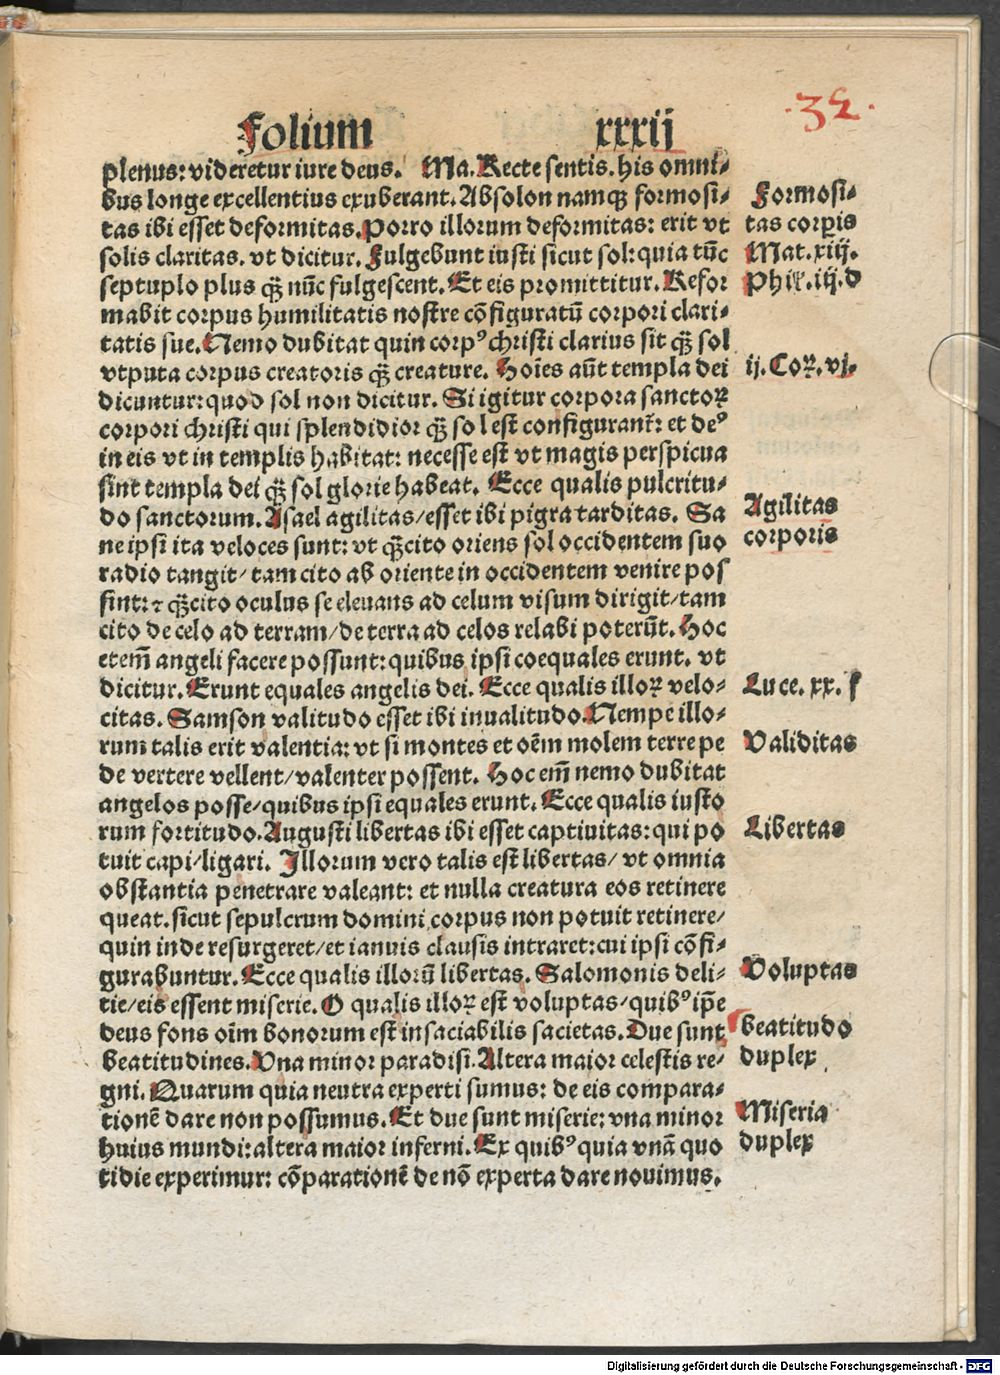 Folium xxxij
·32·
plenus: videretur iure deus. Ma. Recte sentis. his omni⸗
bus longe excellentius exuberant. Absolon namqꝫ formosi⸗
tas ibi esset deformitas. Porro illorum deformitas: erit vt
solis claritas. vt dicitur. Fulgebunt iusti sicut sol: quia tūc
septuplo plus qꝫ̄ nūc fulgescent. Et eis promittitur. Refor
mabit corpus humilitatis nostre cōfiguratū corpori clari⸗
tatis sue. Nemo dubitat quin corpꝰ christi clarius sit qꝫ̄ sol
vtputa corpus creatoris qꝫ̄ creature. Hoīes aūt templa dei
dicuntur: quod sol non dicitur. Si igitur corpora sanctoꝝ
corpori christi qui splendidior qꝫ̄ sol est configurant᷑: et deꝰ
in eis vt in templis habitat: necesse est vt magis perspicua
sint templa dei qꝫ̄ sol glorie habeat. Ecce qualis pulcritu⸗
do sanctorum. Asael agilitas/esset ibi pigra tarditas. Sa
ne ipsi ita veloces sunt: vt qꝫ̄cito oriens sol occidentem suo
radio tangit/tam cito ab oriente in occidentem venire pos
sint: ⁊ qꝫ̄cito oculus se eleuans ad celum visum dirigit/tam
cito de celo ad terram/de terra ad celos relabi poterūt. Hoc
etem̄ angeli facere possunt: quibus ipsi coequales erunt. vt
dicitur. Erunt equales angelis dei. Ecce qualis illoꝝ velo⸗
citas. Samson valitudo esset ibi inualitudo. Nempe illo⸗
rum talis erit valentia: vt si montes et oēm molem terre pe
de vertere vellent/valenter possent. Hoc em̄ nemo dubitat
angelos posse/quibus ipsi equales erunt. Ecce qualis iusto
rum fortitudo. Augusti libertas ibi esset captiuitas: qui po
tuit capi/ligari. Illorum vero talis est libertas/vt omnia
obstantia penetrare valeant: et nulla creatura eos retinere
queat. sicut sepulcrum domini corpus non potuit retinere/
quin inde resurgeret/et ianuis clausis intraret: cui ipsi cōfi⸗
gurabuntur. Ecce qualis illorū libertas. Salomonis deli⸗
tie/eis essent miserie. O qualis illoꝝ est voluptas/quibꝰ ip̄e
deus fons oīm bonorum est insaciabilis sacietas. Due sunt
beatitudines. Una minor paradisi. Altera maior celestis re⸗
gni. Quarum quia neutra experti sumus: de eis compara⸗
tionē dare non possumus. Et due sunt miserie: vna minor
huius mundi: altera maior inferni. Ex quibꝰ quia vnā quo
tidie experimur: cōparationē de nō experta dare nouimus.
Formosi⸗
tas corꝑis
Mat. xiij.
Phil̓. iij. d
ij. Coꝝ. vj.
Agilitas
corporis
Luce. xx. f
Validitas
Libertas
Voluptas
beatitudo
duplex
Miseria
duplex
Digitalisierung gefördert durch die Deutsche Forschungsgemeinschaft - DFG